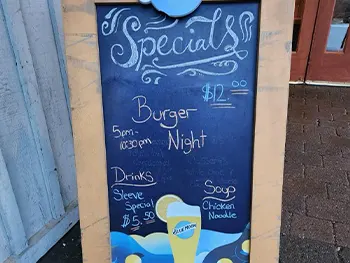 Specials
$12.00
Burger
Night
5pm-
10:30pm
Drinks
Sleeve
Special
$5.50
Soup
Chicken
Noodle
BLUE MOON